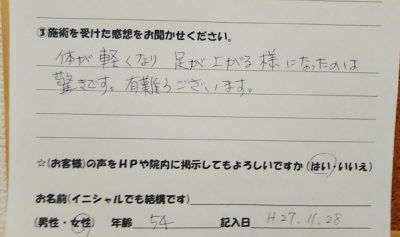 ③施術を受けた感想をお聞かせください。
体が軽くなり 足が上がる様になったのは
驚きです。有難うございます。
☆(お客様)の声をHPや院内に掲示してもよろしいですか (はい・いいえ)
お名前(イニシャルでも結構です)
(男性・女性) 年齢 54 記入日 H27.11.28